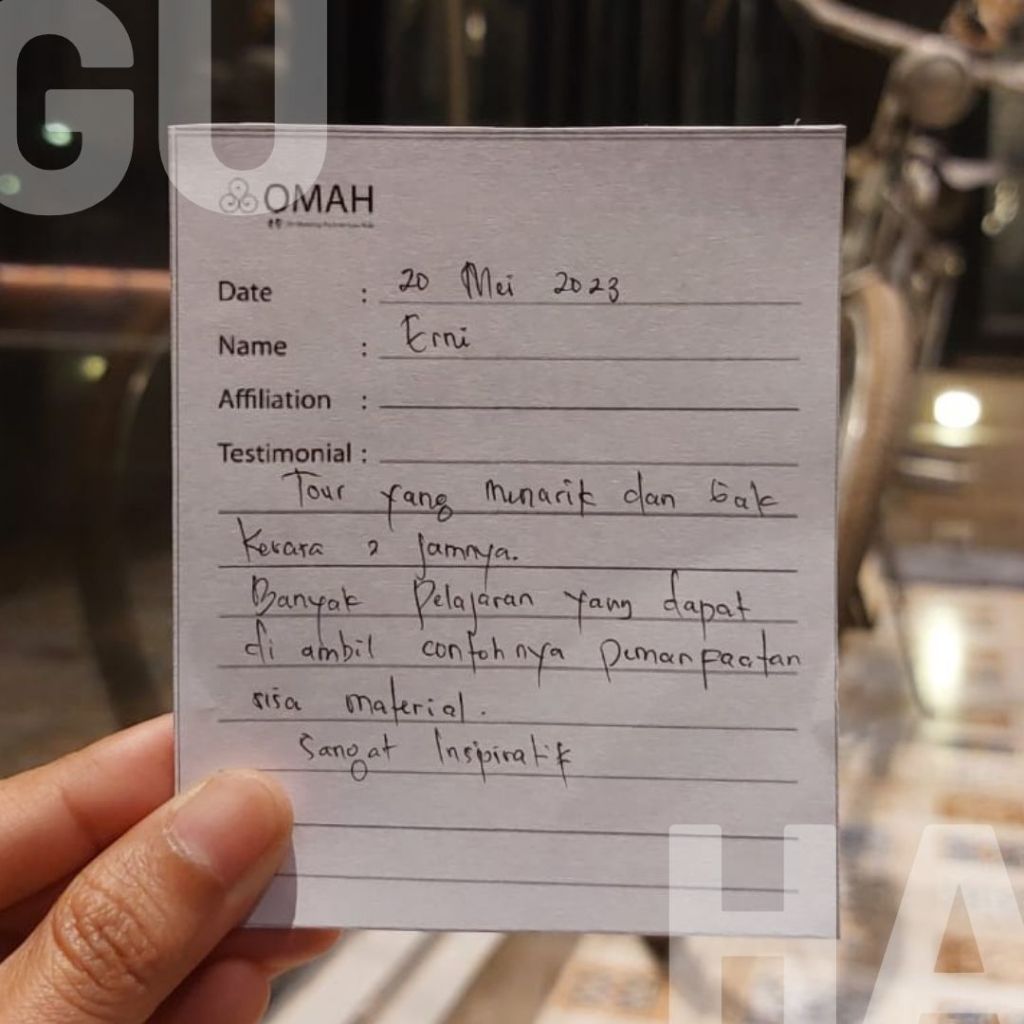 GU
OMAH
Date : 20 Mei 2023
Name : Erni
Affiliation :
Testimonial :
Tour yang menarik dan Gak
Kerara 2 Jamnya.
Banyak Pelajaran yang dapat
di ambil contohnya pemanpaatan
sisa material.
Sangat Inspiratif
HA